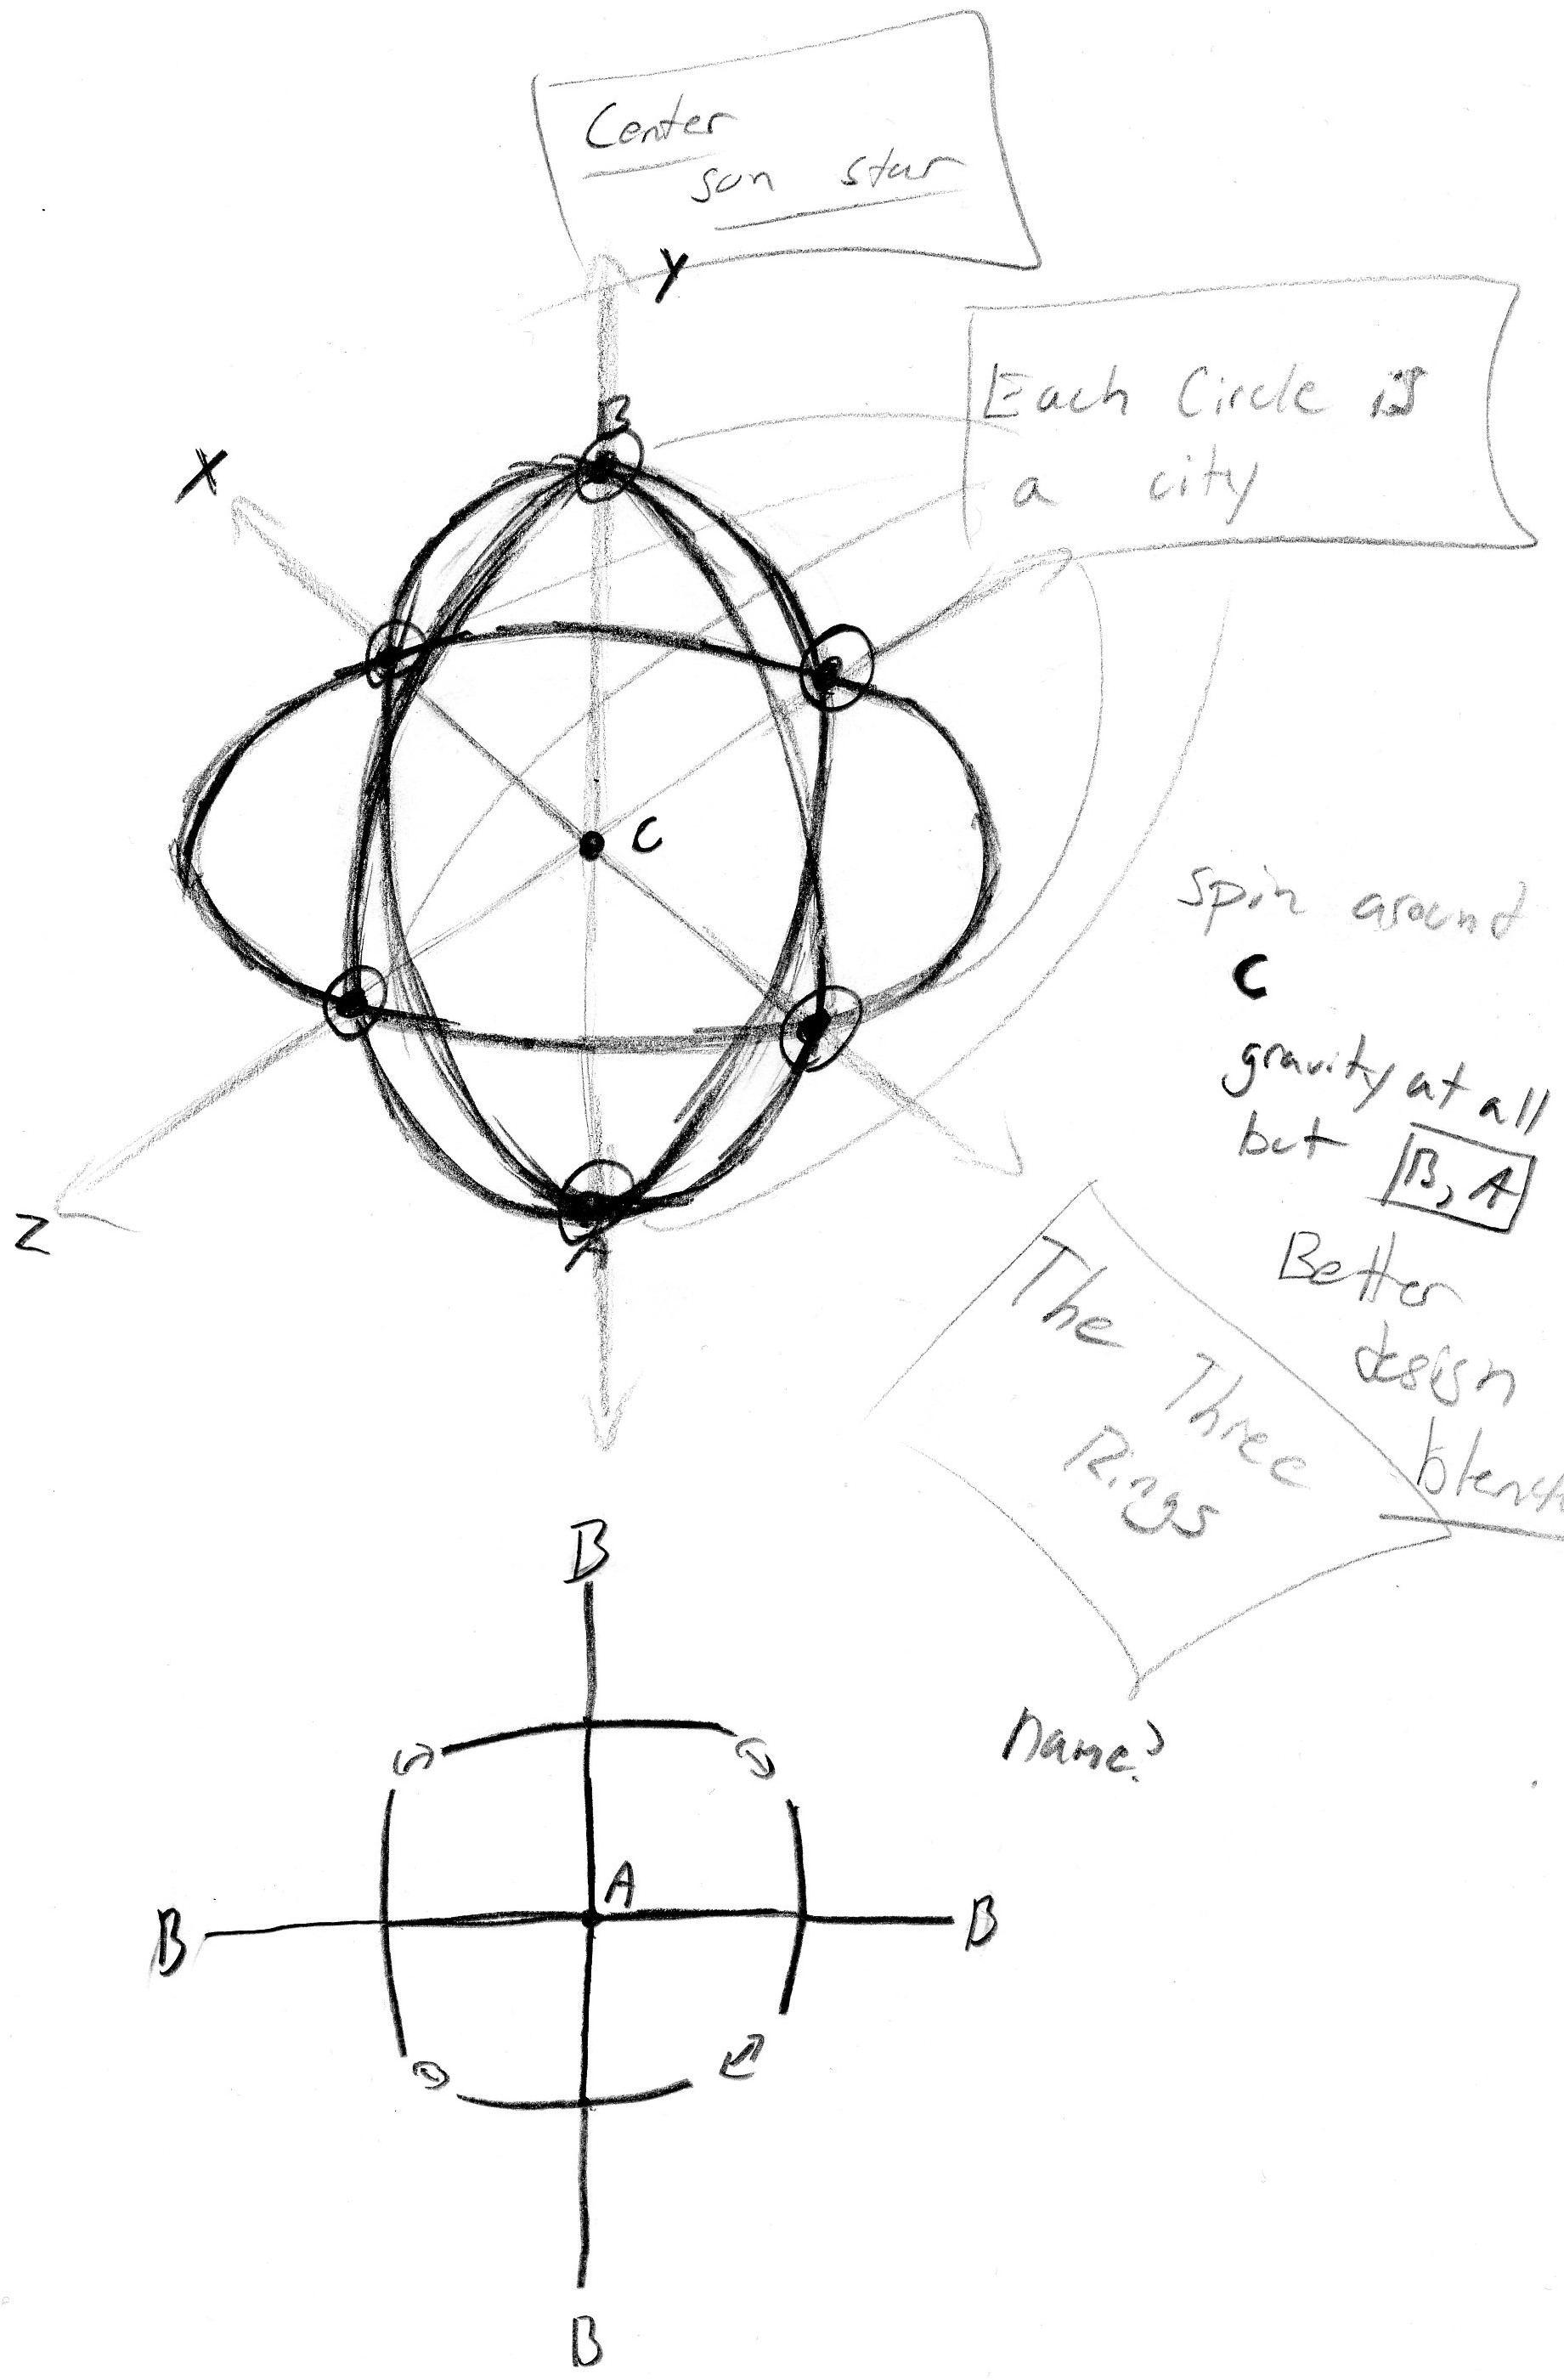 Center
sun star
Y
B
X
Each Circle is
a city
C
spin around
C
gravity at all
but B, A
Z
A
Better
design
The Three
Rings
name?
B
A
B
B
B